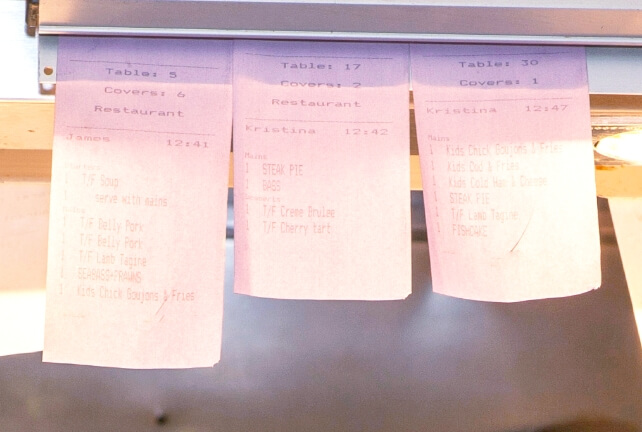 Table: 5
Covers: 6
Restaurant
James 12:41
1 T/F Soup
serve with mains
1 T/F Belly Pork
1 T/F Belly Port
1 T/F Lamb Tagine
1 SEABASS+PRAWNS
1 Kids Chick Goujons & Fries
Table: 17
Covers: 2
Restaurant
Kristina 12:42
Mains
1 STEAK PIE
1 BASS
Desserts
1 T/F Creme Brulee
1 T/F Cherry tart
Table: 30
Covers: 1
Kristina 12:47
Mains
1 Kids Chick Goujons & Fries
1 Kids Cod & Fries
1 Kids Cold Ham & Cheese
1 STEAK PIE
1 T/F Lamb Tagine
1 FISHCAKE